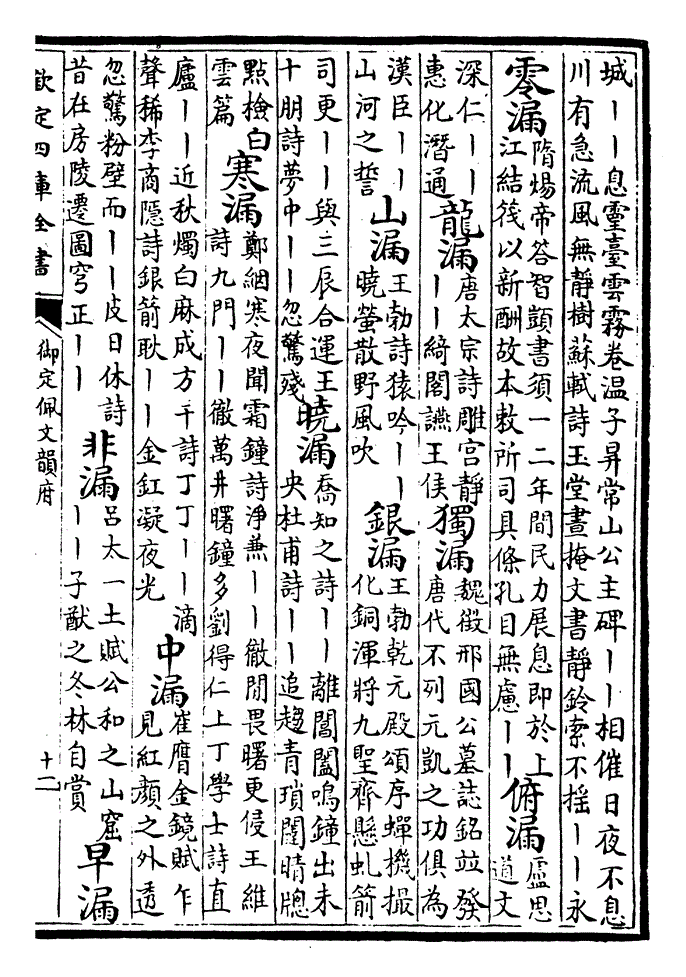 城丨丨息靈臺雲霧卷温子昇常山公主碑丨丨相催日夜不息
川有急流風無靜樹蘇軾詩玉堂晝掩文書靜鈴索不搖丨丨永
零漏
隋煬帝答智顗書須一二年間民力展息即於上
江結筏以新酬故本敕所司具條孔目無慮丨丨
俯漏
盧思
道文
深仁丨丨
惠化潛通
龍漏
唐太宗詩雕宫靜
丨丨綺閣讌王侯
獨漏
魏徴邢國公墓誌銘竝發
唐代不列元凱之功俱為
漢臣丨丨
山河之誓
山漏
王勃詩猿吟丨丨
曉螢散野風吹
銀漏
王勃乾元殿頌序蟬機撮
化銅渾將九聖齊懸虬箭
司更丨丨與三辰合運王
十朋詩夢中丨丨忽驚殘
曉漏
喬知之詩丨丨離閶闔鳴鐘出未
央杜甫詩丨丨追趨青瑣闥晴牎
點檢白
雲篇
寒漏
鄭絪寒夜聞霜鐘詩淨兼丨丨徹閒畏曙更侵王維
詩九門丨丨徹萬井曙鐘多劉得仁上丁學士詩直
廬丨丨近秋燭白麻成方干詩丁丁丨丨滴
聲稀李商隱詩銀箭耿丨丨金釭凝夜光
中漏
崔膺金鏡賦乍
見紅顔之外透
忽驚粉壁而丨丨皮日休詩
昔在房陵遷圖穹正丨丨
非漏
呂太一土賦公和之山窟
丨丨子猷之冬林自賞
早漏
欽定四庫全書
御定佩文韻府
十二